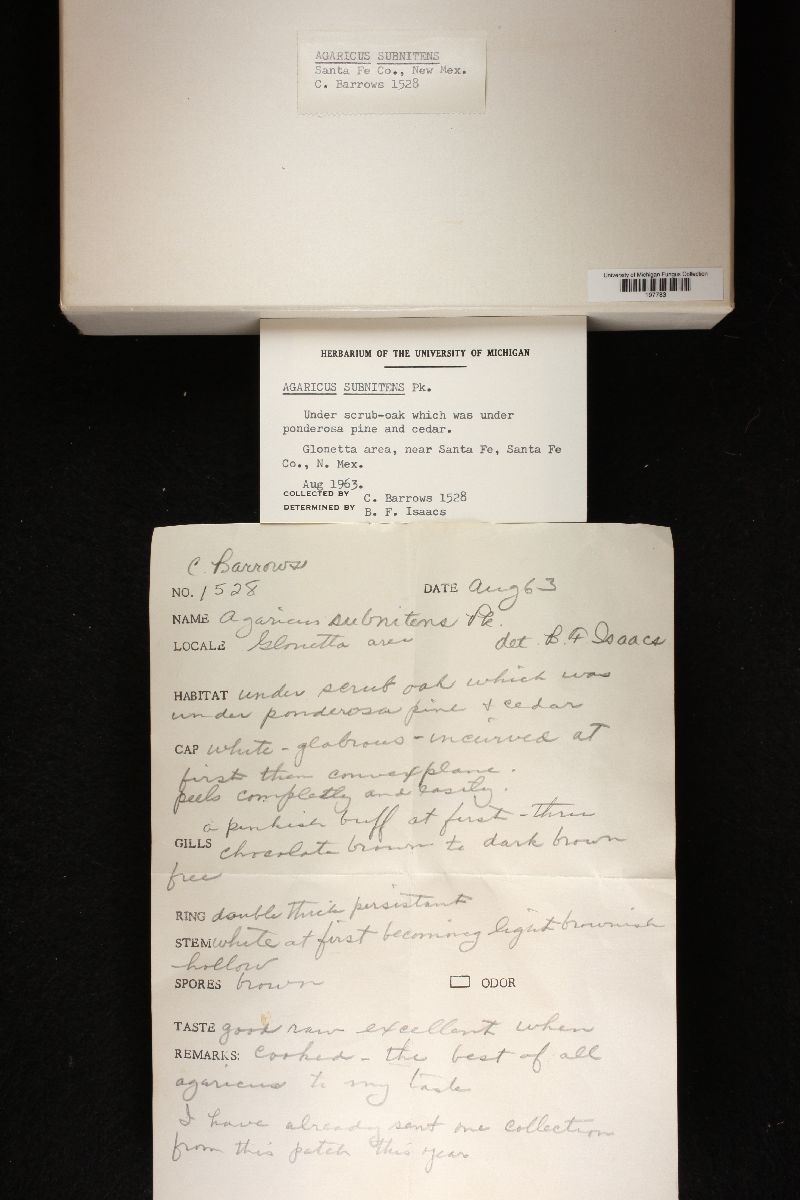 AGARICUS SUBNITENS
Santa Fe Co., New Mex.
C. Barrows 1528
University of Michigan Fungus Collection
197783
HERBARIUM OF THE UNIVERSITY OF MICHIGAN
AGARICUS SUBNITENS Pk.
Under scrub-oak which was under
ponderosa pine and cedar.
Glonetta area, near Santa Fe, Santa Fe
Co., N. Mex.
Aug 1963.
COLLECTED BY C. Barrows 1528
DETERMINED BY B. F. Isaacs
C. Barrows
NO. 1528 DATE Aug 63
NAME Agaricus subnitens Pk.
LOCALE Glonetta area det B. F Isaacs
HABITAT under scrub oak which was
under ponderosa pine & cedar
CAP white - glabrous - incurved at
first then convex plane.
peels completly and easily.
a pinkish buff at first - thru
GILLS chocolate brown to dark brown
free
RING double thick persistant
STEM white at first becoming light brownish
hollow
SPORES brown ODOR
TASTE good raw excellent when
REMARKS: cooked - the best of all
agaricus to my taste
I have already sent one collection
from this patch this year